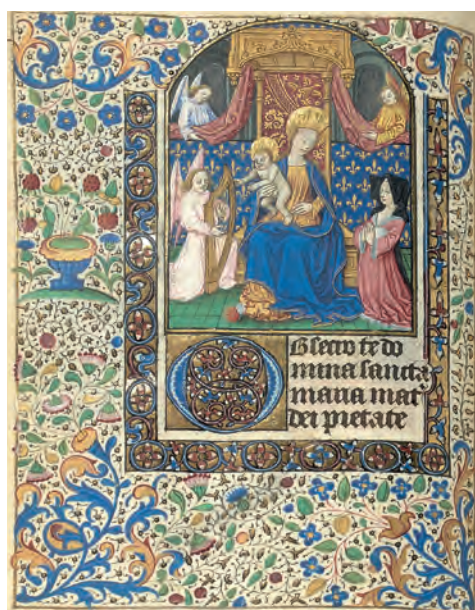 Obsecro te do
mina sancta
maria mat
dei pietate